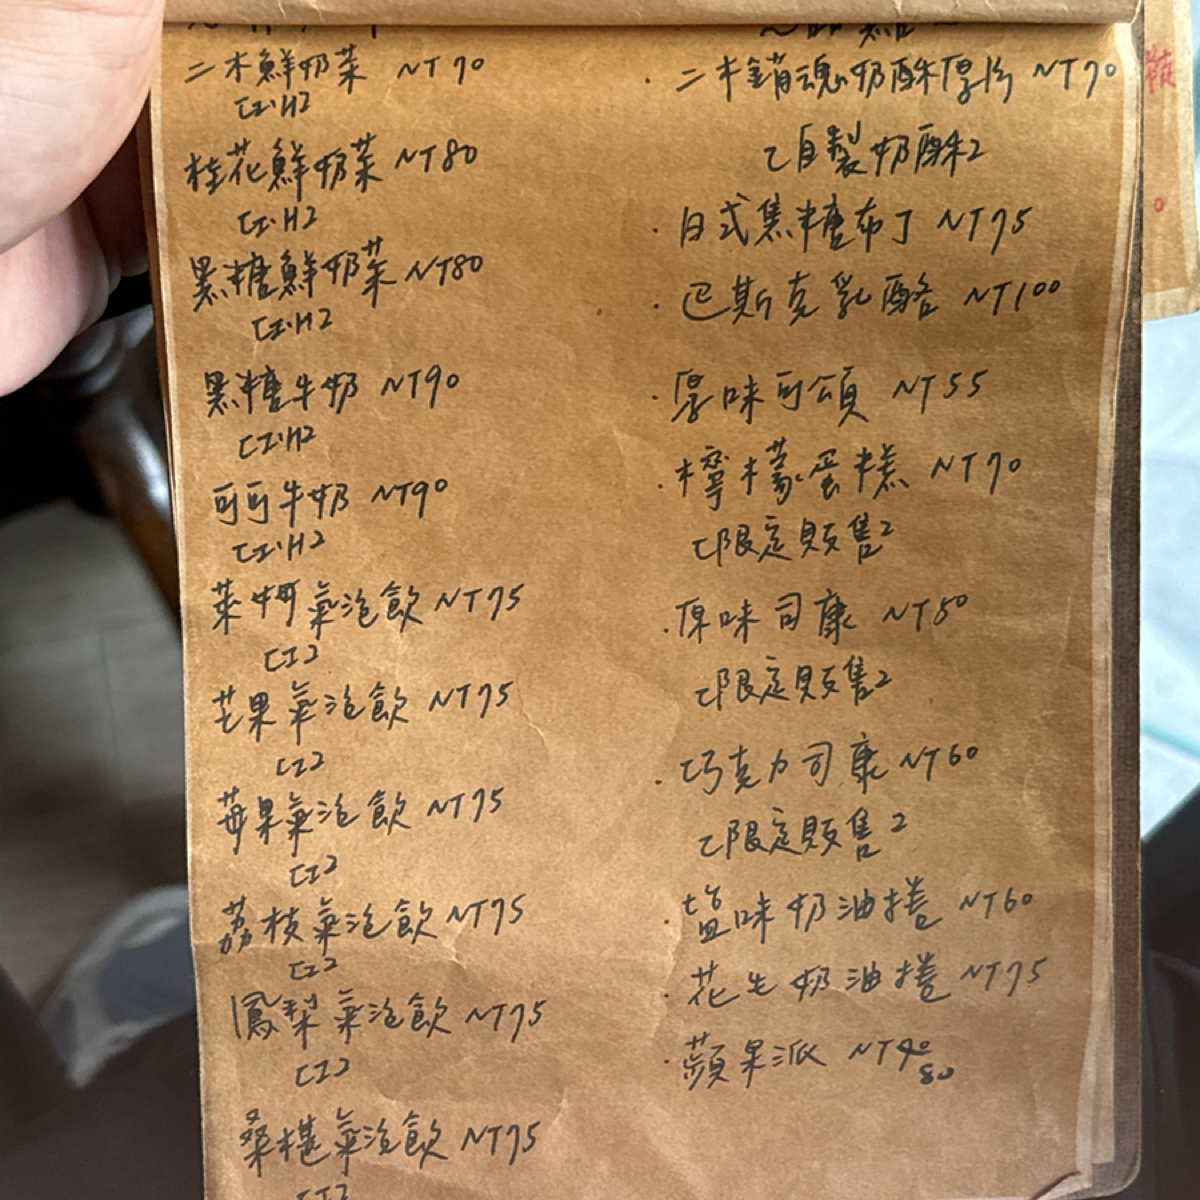 二木鮮奶茶 NT70
[I.H]
桂花鮮奶茶 NT80
[I.H]
黑糖鮮奶茶 NT80
[I.H]
黑糖牛奶 NT90
[I.H]
可可牛奶 NT90
[I.H]
萊姆氣泡飲 NT75
[I]
芒果氣泡飲 NT75
[I]
莓果氣泡飲 NT75
[I]
荔枝氣泡飲 NT75
[I]
鳳梨氣泡飲 NT75
[I]
桑椹氣泡飲 NT75
[I]
· 二木銷魂奶酥厚片 NT70
[自製奶酥]
· 日式焦糖布丁 NT75
· 巴斯克乳酪 NT100
· 厚味可頌 NT55
· 檸檬蛋糕 NT70
[限定販售]
· 原味司康 NT50
[限定販售]
· 巧克力司康 NT60
[限定販售]
· 塩味奶油捲 NT60
· 花生奶油捲 NT75
· 蘋果派 NT
80